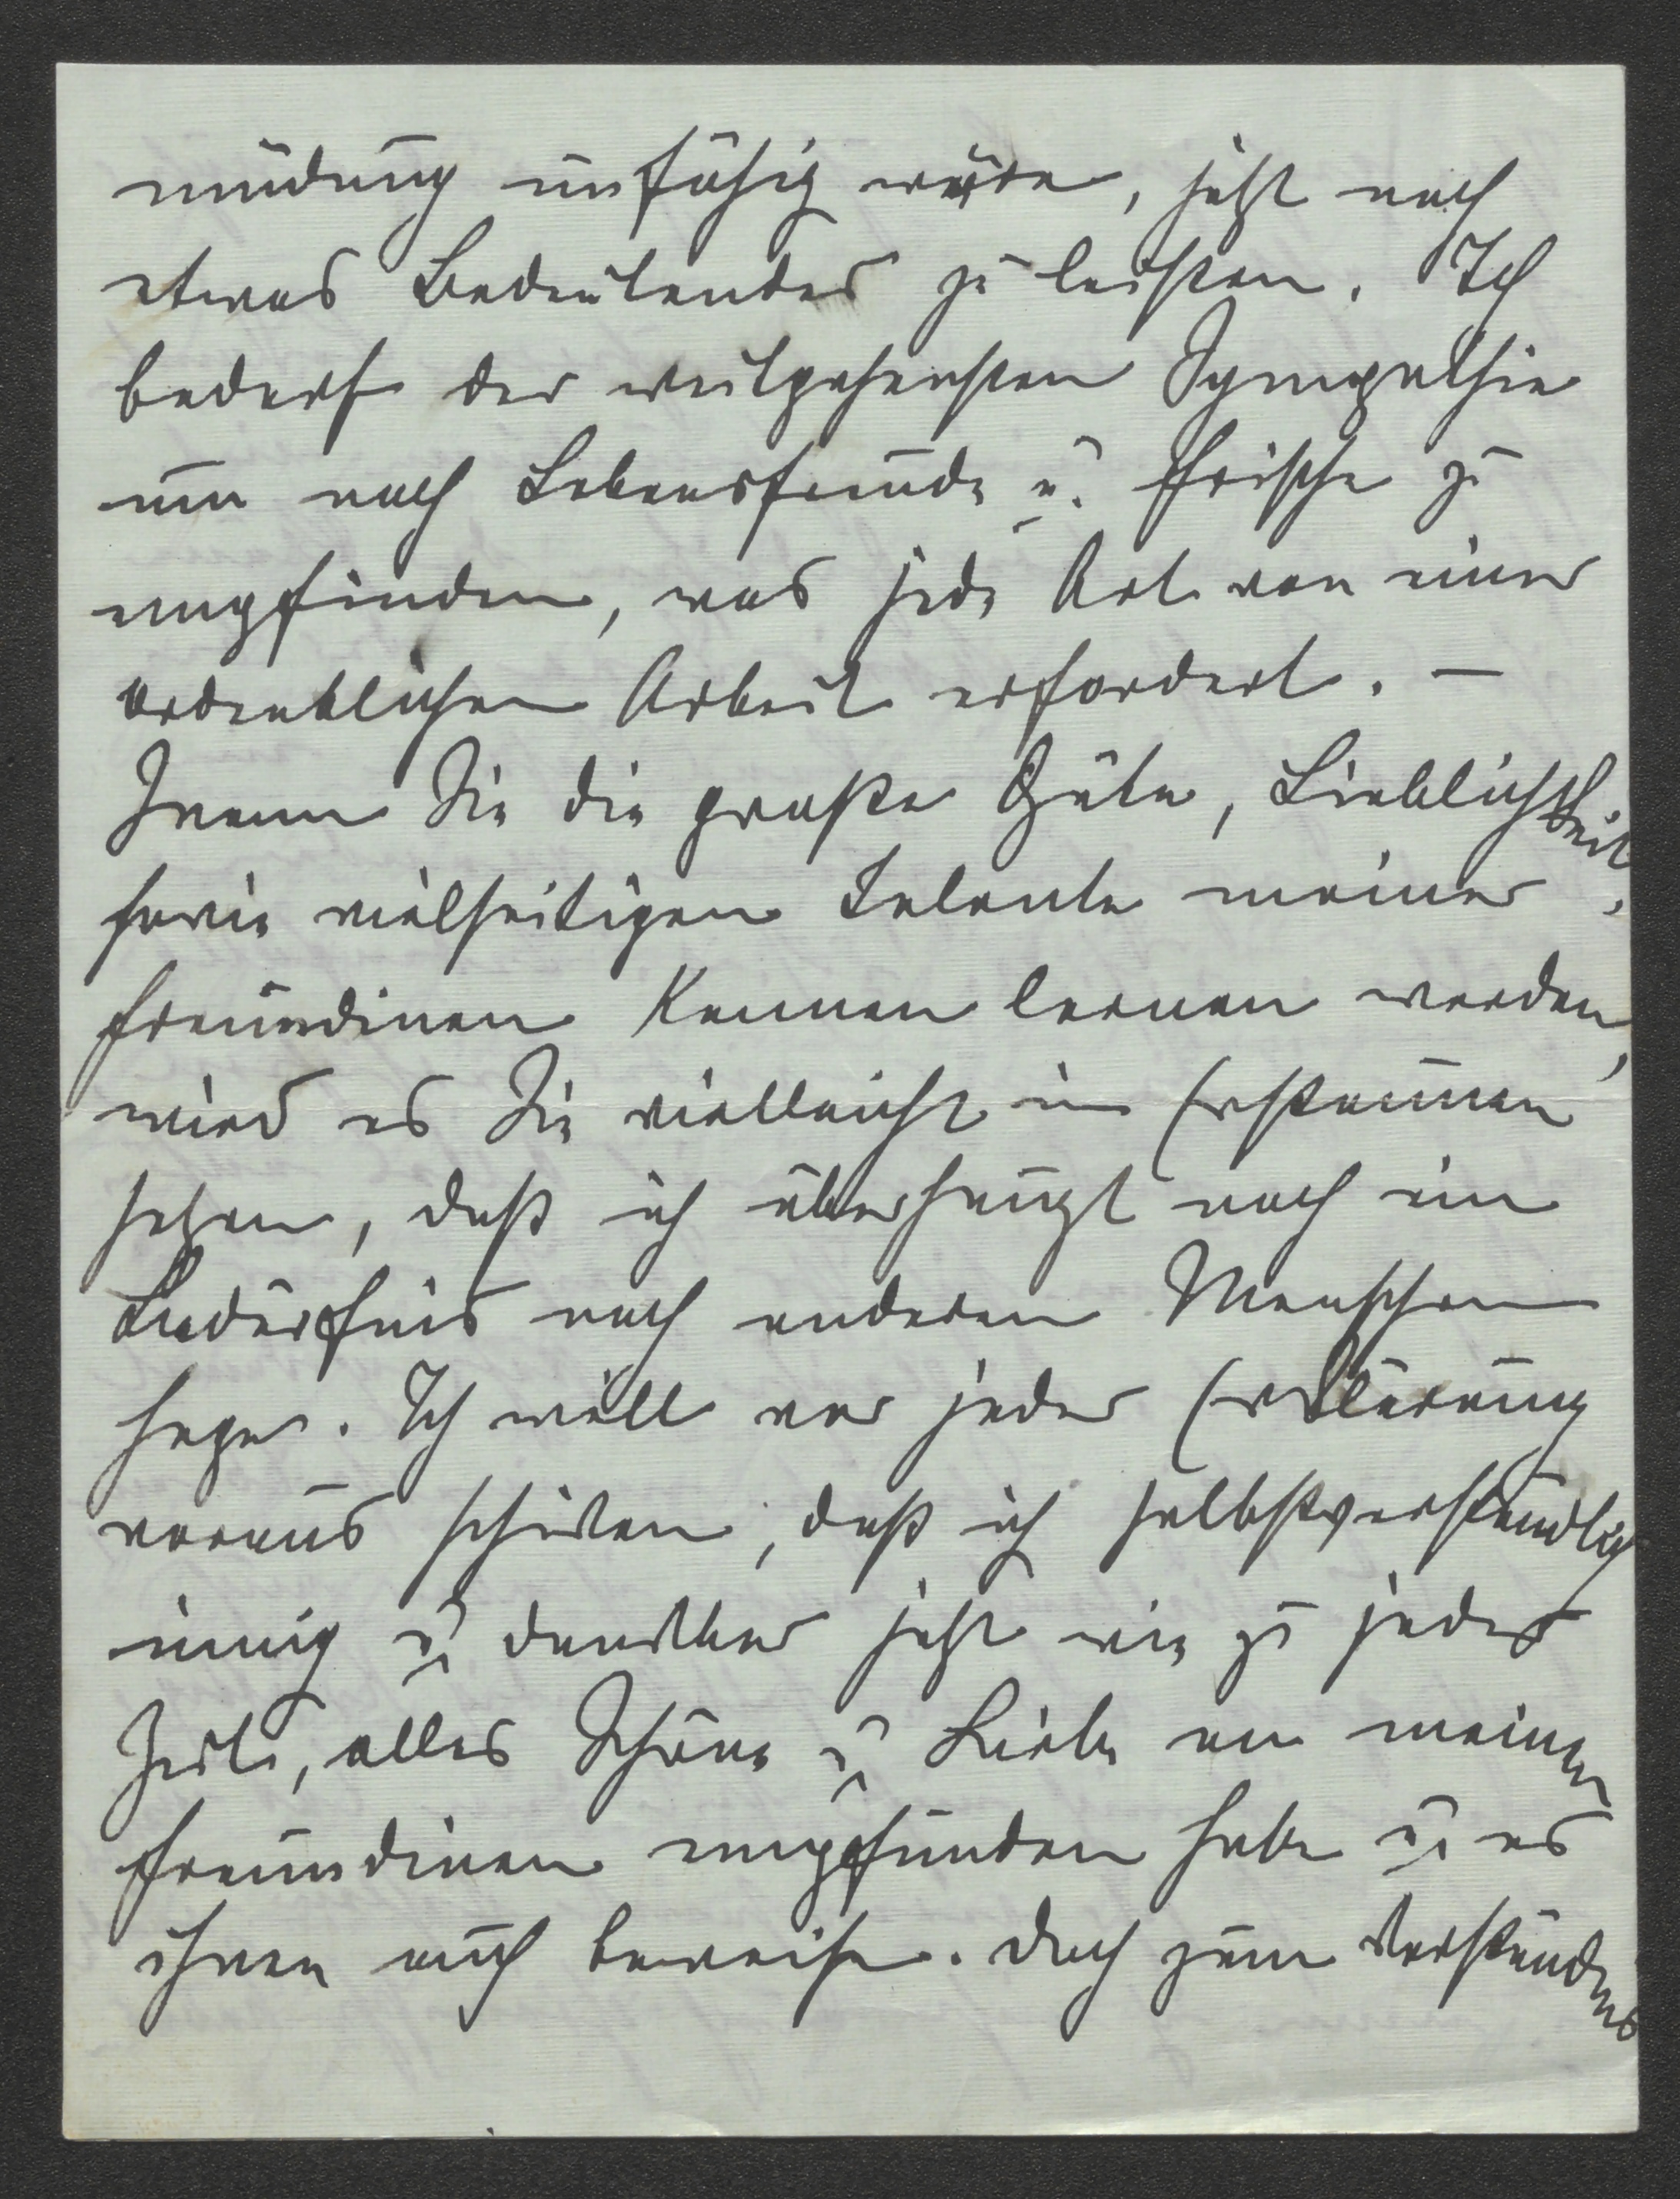 müdung unfähig wäre, jetzt noch
etwas Bedeutendes zu leisten. Ich
bedarf der weitgehensten Sympathie
um noch Lebensfreude u. Frische zu
empfinden, was jede Art von einer
ordentlichen Arbeit erfordert. —
Wenn Sie die große Güte, Lieblichkeit,
sowie vielseitigen Talente meiner
Freundinen kennen lernen werden,
wird es Sie vielleicht in Erstaunen
setzen, daß ich überhaupt noch ein
Bedürfnis nach anderen Menschen
hege. Ich will vor jeder Erklärung
voraus schicken, daß ich selbstverständlich
innig u. dankbar jetzt wie zu jeder
Zeit, alles Schöne u. Liebe an meinen
Freundinen empfunden habe u. es
ihnen auch beweise. Doch zum Verständnis